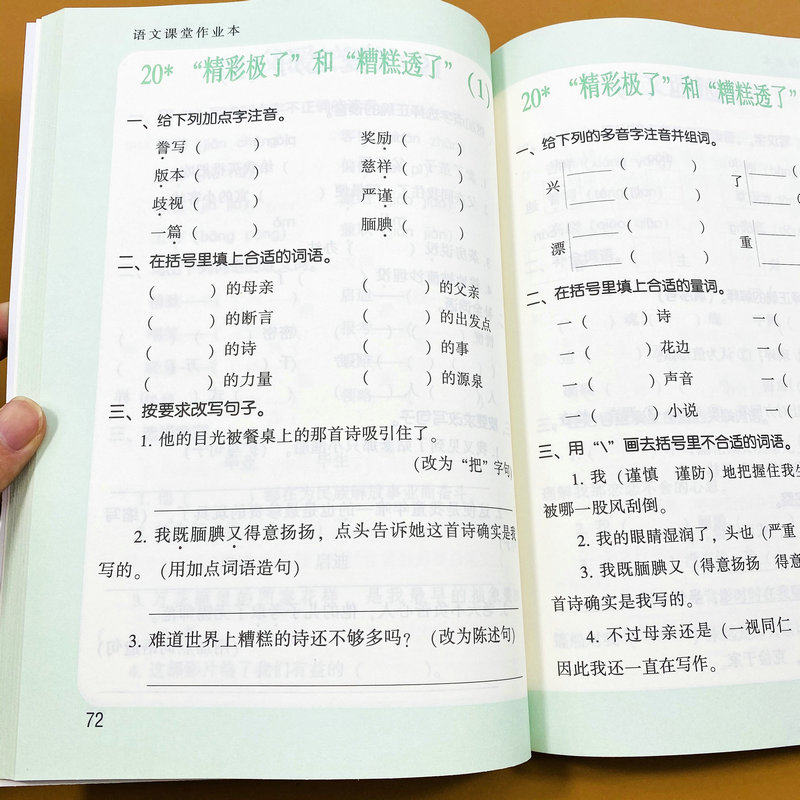 语文课堂作业本
20* “精彩极了”和“糟糕透了”(1)
一、给下列加点字注音。
誊写( ) 奖励( )
版本( ) 慈祥( )
歧视( ) 严谨( )
一篇( ) 腼腆( )
二、在括号里填上合适的词语。
( )的母亲 ( )的父亲
( )的断言 ( )的出发点
( )的诗 ( )的事
( )的力量 ( )的源泉
三、按要求改写句子。
1. 他的目光被餐桌上的那首诗吸引住了。
(改为“把”字句)
2. 我既腼腆又得意扬扬，点头告诉她这首诗确实是我
写的。(用加点词语造句)
3. 难道世界上糟糕的诗还不够多吗？(改为陈述句)
72
20* “精彩极了”和“糟糕透了”
一、给下列的多音字注音并组词。
兴 ( ) 了
( )
漂 ( ) 重
( )
二、在括号里填上合适的量词。
一( )诗 一(
一( )花边 一(
一( )声音 一(
一( )小说 一(
三、用“\”画去括号里不合适的词语。
1. 我(谨慎 谨防)地把握住我生
被哪一股风刮倒。
2. 我的眼睛湿润了，头也(严重
3. 我既腼腆又(得意扬扬 得意
首诗确实是我写的。
4. 不过母亲还是(一视同仁
因此我还一直在写作。